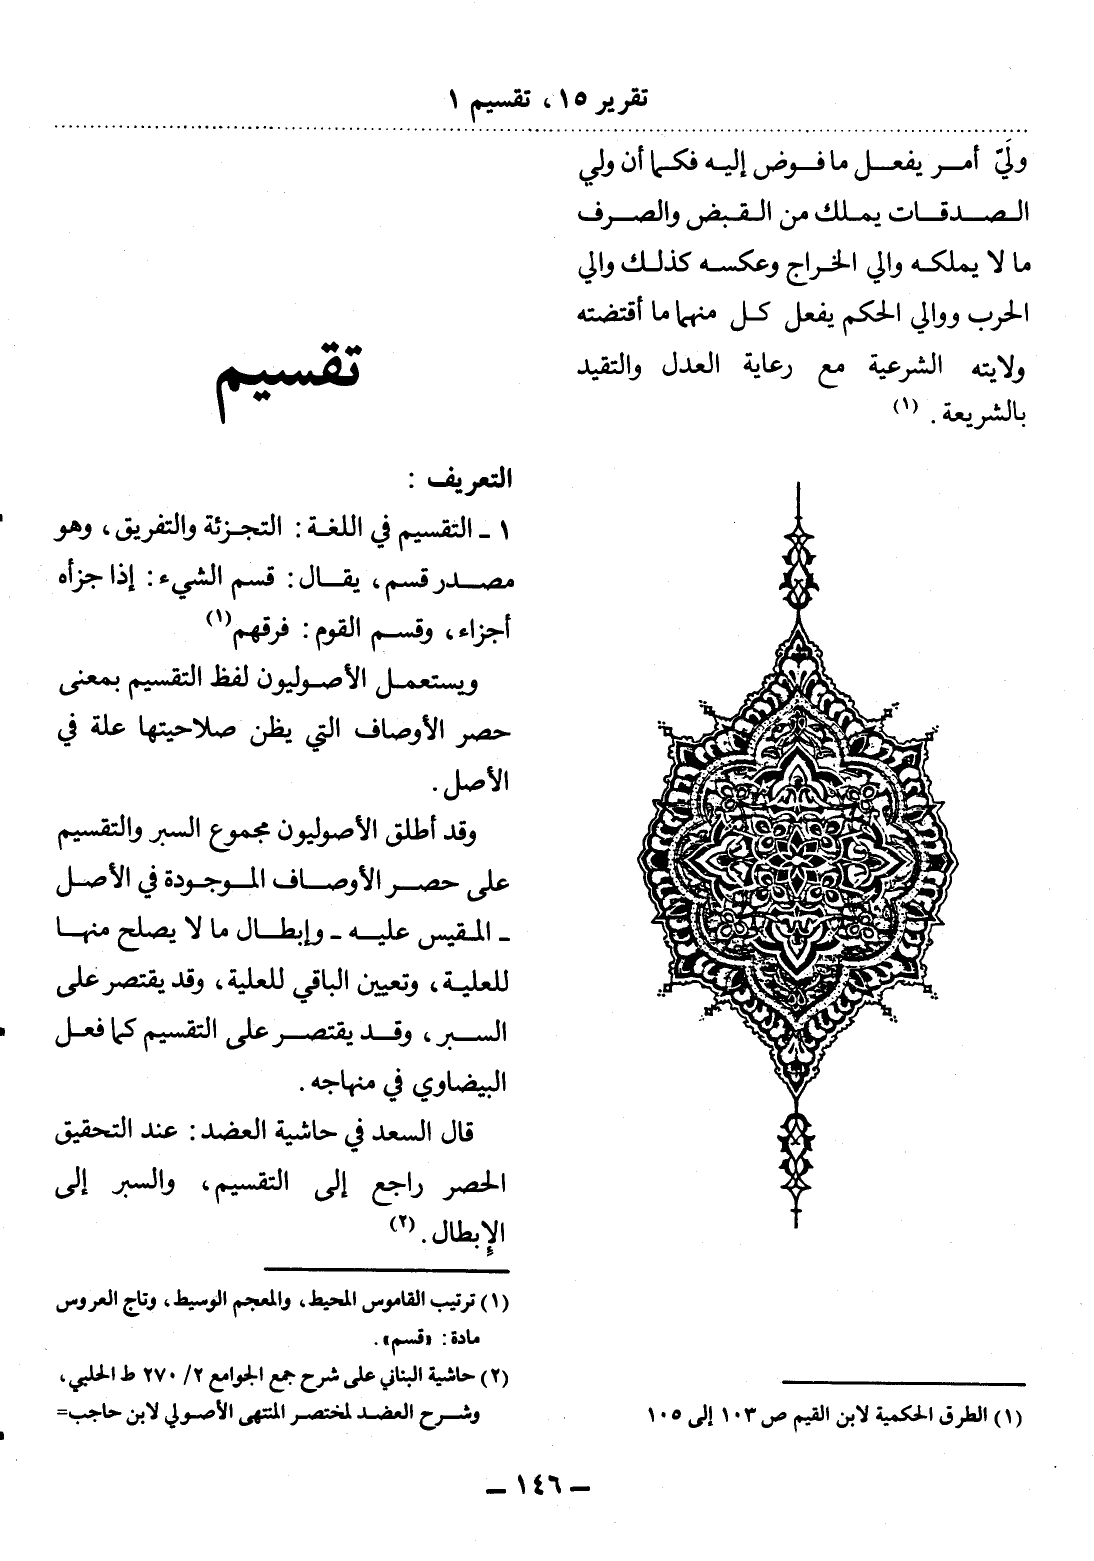 تقرير ١٥، تقسيم ١
وليّ أمر يفعل ما فوض إليه فكما أن ولي
الصدقات يملك من القبض والصرف
ما لا يملكه والي الخراج وعكسه كذلك والي
الحرب ووالي الحكم يفعل كل منهما ما أقتضته
ولايته الشرعية مع رعاية العدل والتقيد
بالشريعة. (١)
(١) الطرق الحكمية لابن القيم ص ١٠٣ إلى ١٠٥
تقسيم
التعريف :
١ ـ التقسيم في اللغة: التجزئة والتفريق، وهو
مصدر قسم، يقال: قسم الشيء: إذا جزأه
أجزاء، وقسم القوم: فرقهم(١)
ويستعمل الأصوليون لفظ التقسيم بمعنى
حصر الأوصاف التي يظن صلاحيتها علة في
الأصل.
وقد أطلق الأصوليون مجموع السبر والتقسيم
على حصر الأوصاف الموجودة في الأصل
ـ المقيس عليه ـ وإبطال ما لا يصلح منها
للعلية، وتعيين الباقي للعلية، وقد يقتصر على
السبر، وقد يقتصر على التقسيم كما فعل
البيضاوي في منهاجه.
قال السعد في حاشية العضد: عند التحقيق
الحصر راجع إلى التقسيم، والسبر إلى
الإبطال. (٢)
(١) ترتيب القاموس المحيط، والمعجم الوسيط، وتاج العروس
مادة: «قسم».
(٢) حاشية البناني على شرح جمع الجوامع ٢/ ٢٧٠ ط الحلبي،
وشرح العضد لمختصر المنتهى الأصولي لابن حاجب=
ـ ١٤٦ ـ